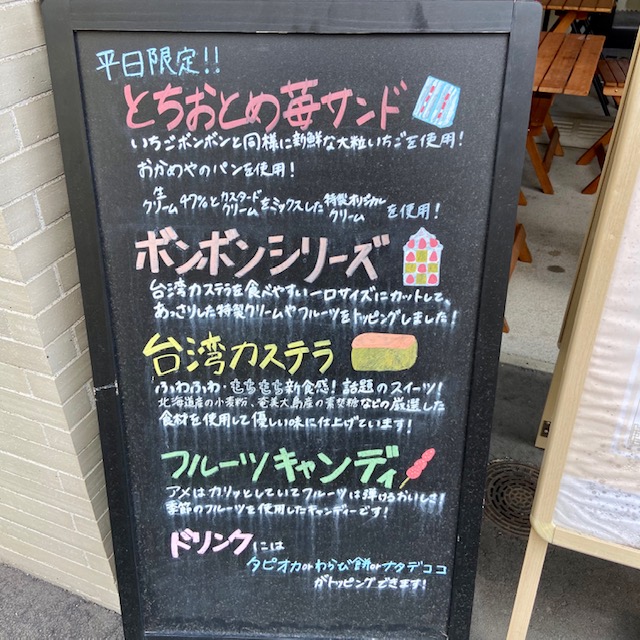 平日限定!!
とちおとめ苺サンド
いちごボンボンと同様に新鮮な大粒いちごを使用!
おかめやのパンを使用!
生クリーム47%とカスタードクリームをミックスした特製オリジナルクリームを使用!
ボンボンシリーズ
台湾カステラを食べやすい一口サイズにカットして、
あっさりした特製クリームやフルーツをトッピングしました!
台湾カステラ
ふわふわ・新食感!話題のスイーツ!
北海道産の小麦粉、奄美大島産の素焚糖などの厳選した
食材を使用して優しい味に仕上げています!
フルーツキャンディ
アメはカリッとしていてフルーツは弾けるおいしさ!
季節のフルーツを使用したキャンディーです!
ドリンクには
タピオカorわらび餅orナタデココ
がトッピングできます!